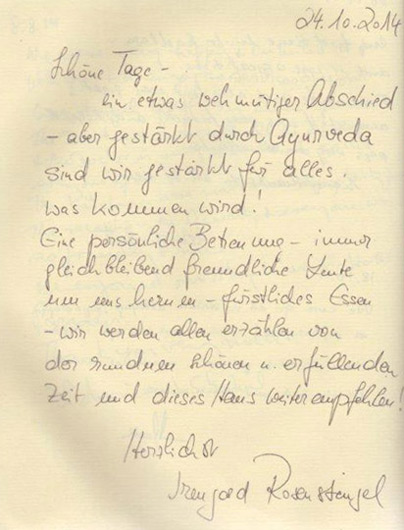 24.10.2014
Schöne Tage -
ein etwas wehmütiger Abschied
- aber gestärkt durch Ayurveda
sind wir gestärkt für alles.
was kommen wird!
Eine persönliche Betreuung - immer
gleichbleibend freundliche Leute
um uns herum - fürstliches Essen
- wir werden allen erzählen von
der rundum schönen u. erfüllenden
Zeit und dieses Haus weiterempfehlen!
Herzlichst
Irmgard Rosenstengel